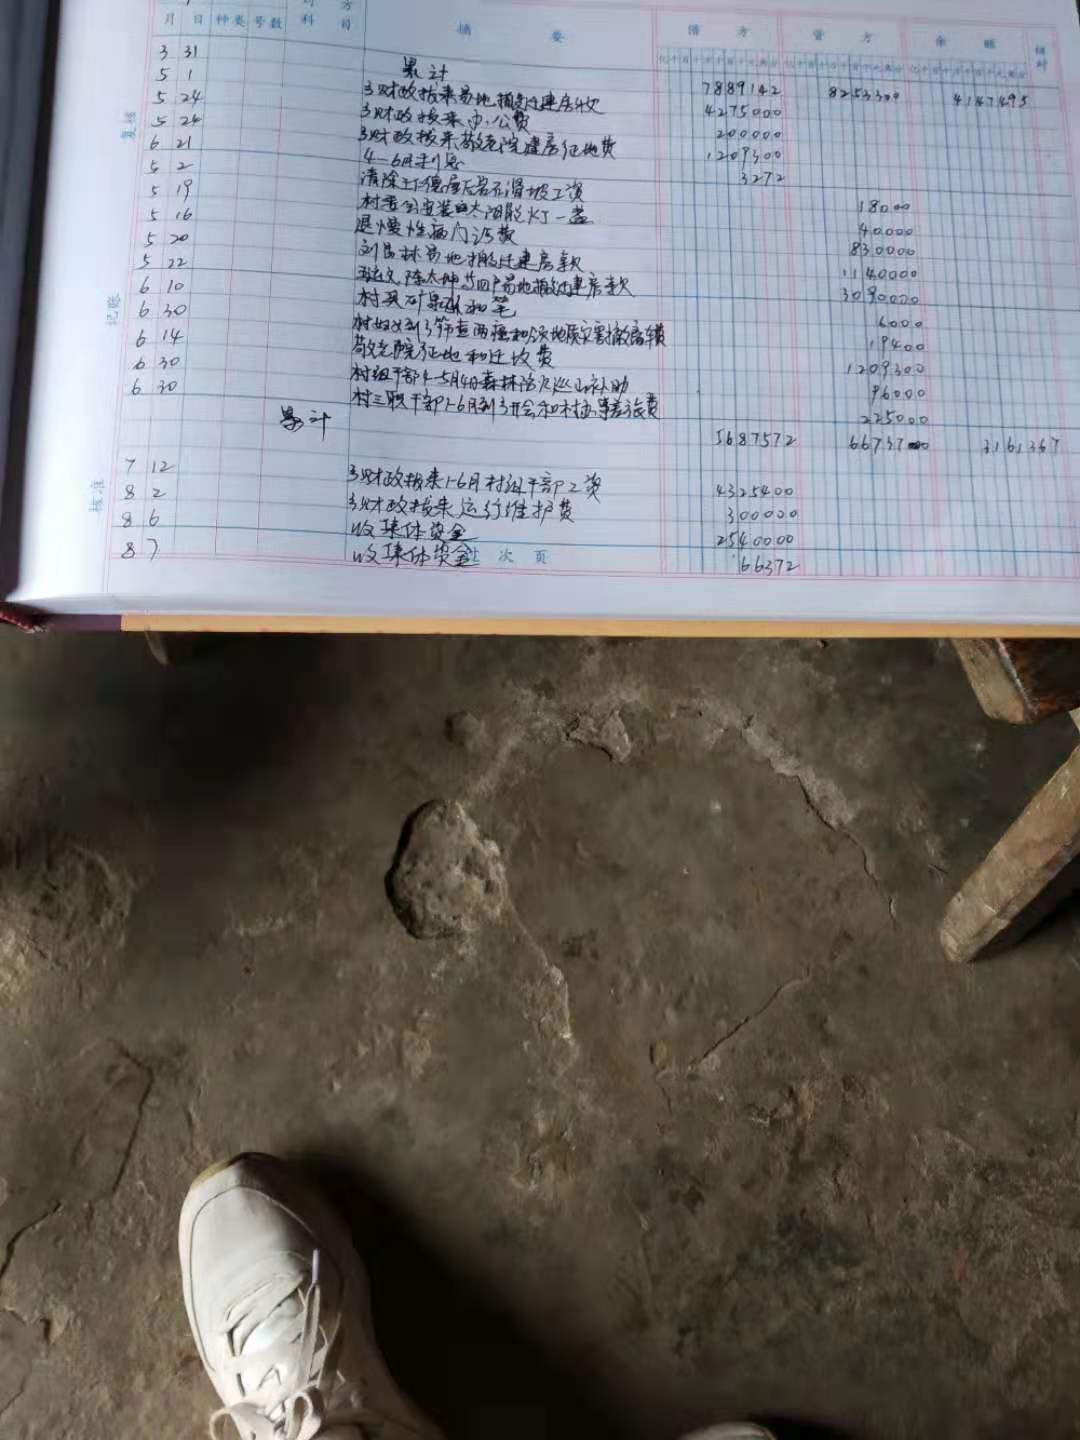 月 日 种类 号数 科 目 摘 要 借 方 贷 方 余 额 核对
3 31 累计 7889142 8253300 4147495
5 1 乡财政拨来易地搬迁建房款 4275000
5 24 乡财政拨来办公费 200000
5 24 乡财政拨来敬老院建房征地费 1209300
6 21 4-6月利息 3272
5 2 清除 屋后岩石滑坡工资 18000
5 19 村委会安装太阳能灯一盏 40000
5 16 退慢性病门诊费 830000
5 20 刘昌林易地搬迁建房款 1140000
5 22 陈太坤等四户易地搬迁建房款 3090000
6 10 村买矿泉水和笔 6000
6 30 村妇女到乡筛查两癌和 地质灾害 车费 19400
6 14 敬老院征地和迁坟费 1209300
6 30 村组干部4-5月份森林防火巡山补助 96000
6 30 村三职干部1-6月到乡开会和村 差旅费 225000
累计 5687572 6673700 3161367
7 12 乡财政拨来1-6月村组干部工资 4325400
8 2 乡财政拨来运行维护费 300000
8 6 收集体资金 2540000
8 7 收集体资金 过次页 66372
复核
记账
核准